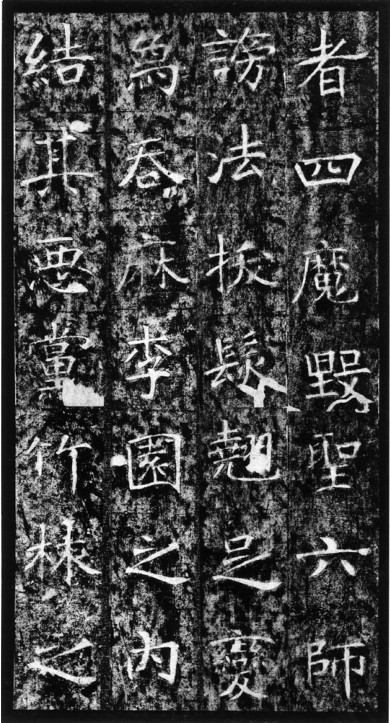 者四魔毀聖六師
謗法拔髮翹足變
為吞麻李園之内
結其悪黨竹林之